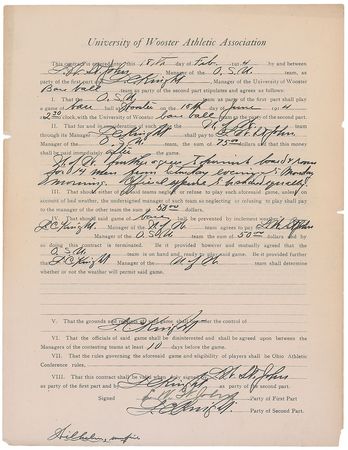 University of Wooster Athletic Association
This contract is entered into this 18th day of Feb. 1914 by and between
L. W. St. John Manager of the O. S. U. team, as
party of the first part and L C Knight, Manager of the University of Wooster
Base ball team as party of the second part stipulates and agrees as follows:
I. That the O. S. U. team as party of the first part shall play
a game of base ball at Wooster on the day of June 1914
2:30 o'clock, with the University base ball team as party of the second part.
II. That for and in consideration of
through its Manager L C Knight shall pay to L. W. St John
Manager of the O. S. U. team, the sum of 75.00 dollars that
shall be paid immediately after
U. of W. further agree to furnish board & room
for 14 men from
morning. Official
III. That should either of above named teams neglect or refuse to play such aforesaid game, unless on
account of bad weather, the undersigned manager of such team as neglecting or refusing to play shall pay
to the manager of the other team the sum of 50.00 dollars.
IV. That should said game of be prevented by inclement weather
L C Knight. Manager of the U. of W. team agrees to pay L. W. St John
Manager of the O. S. U. team the sum of 50.00 dollars and by
so doing this contract is terminated. Be it provided however and mutually agreed that the
O. S. U. team is on hand and ready to play said game. Be it provided further
L C Knight. Manager of the U. of W. team shall determine
whether or not the weather will permit said game.
V. That the grounds and shall be under the control of
L. C. Knight
VI. That the officials of said game shall be disinterested and shall be agreed upon between the
Managers of the contesting teams at least 10 days before the game.
VII. That the rules governing the aforesaid game and eligibility of players shall be Ohio Athletic
Conference rules,
VIII. That this contract shall be valid when duly signed by L. W. St. John
as party of the first part and by L C Knight, as party of the second part.
Signed Party of First Part
L C Knight. Party of Second Part.